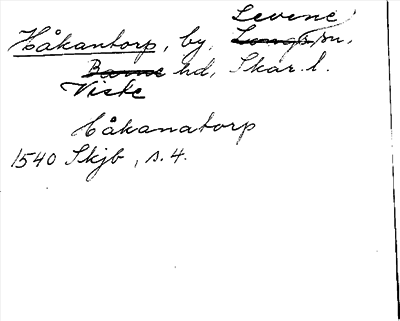 Levene
Håkantorp, by, Longs sn,
Barne hd, Skar. l.
Viste
håkanatorp
1540 Skjb, s. 4.